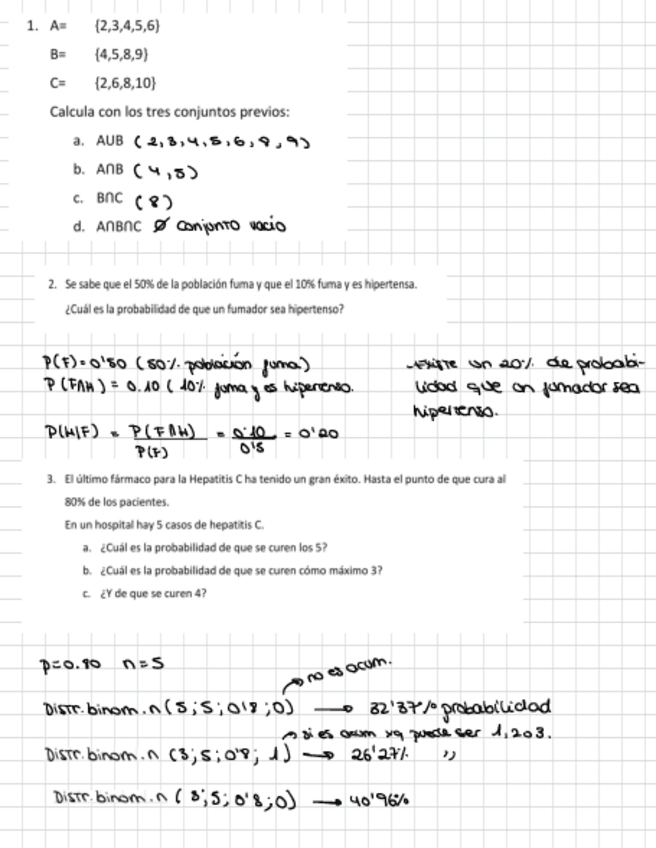 1. A= {2,3,4,5,6}
B= {4,5,8,9}
C= {2,6,8,10}
Calcula con los tres conjuntos previos:
a. AUB (2,3,4,5,6,8,9)
b. A∩B (4,5)
c. B∩C (8)
d. A∩B∩C Ø conjunto vacío
2. Se sabe que el 50% de la población fuma y que el 10% fuma y es hipertensa.
¿Cuál es la probabilidad de que un fumador sea hipertenso?
P(F)=0'50 (50% población fuma)
P(F∩H) = 0.10 (10% fuma y es hipertenso.
P(H|F) = P(F∩H) / P(F) = 0.10 / 0'5 = 0'20
-Existe un 20% de probabi-
lidad que un fumador sea
hipertenso.
3. El último fármaco para la Hepatitis C ha tenido un gran éxito. Hasta el punto de que cura al
80% de los pacientes.
En un hospital hay 5 casos de hepatitis C.
a. ¿Cuál es la probabilidad de que se curen los 5?
b. ¿Cuál es la probabilidad de que se curen cómo máximo 3?
c. ¿Y de que se curen 4?
p=0.80 n=5
→ no es acum.
Distr.binom.n(5;5;0'8;0) → 32'37% probabilidad
→ si es acum ya puede ser 1,2 o 3.
Distr.binom.n (3;5;0'8; 1) → 26'27% ,,
Distr.binom.n ( 3;5;0'8;0) → 40'96%